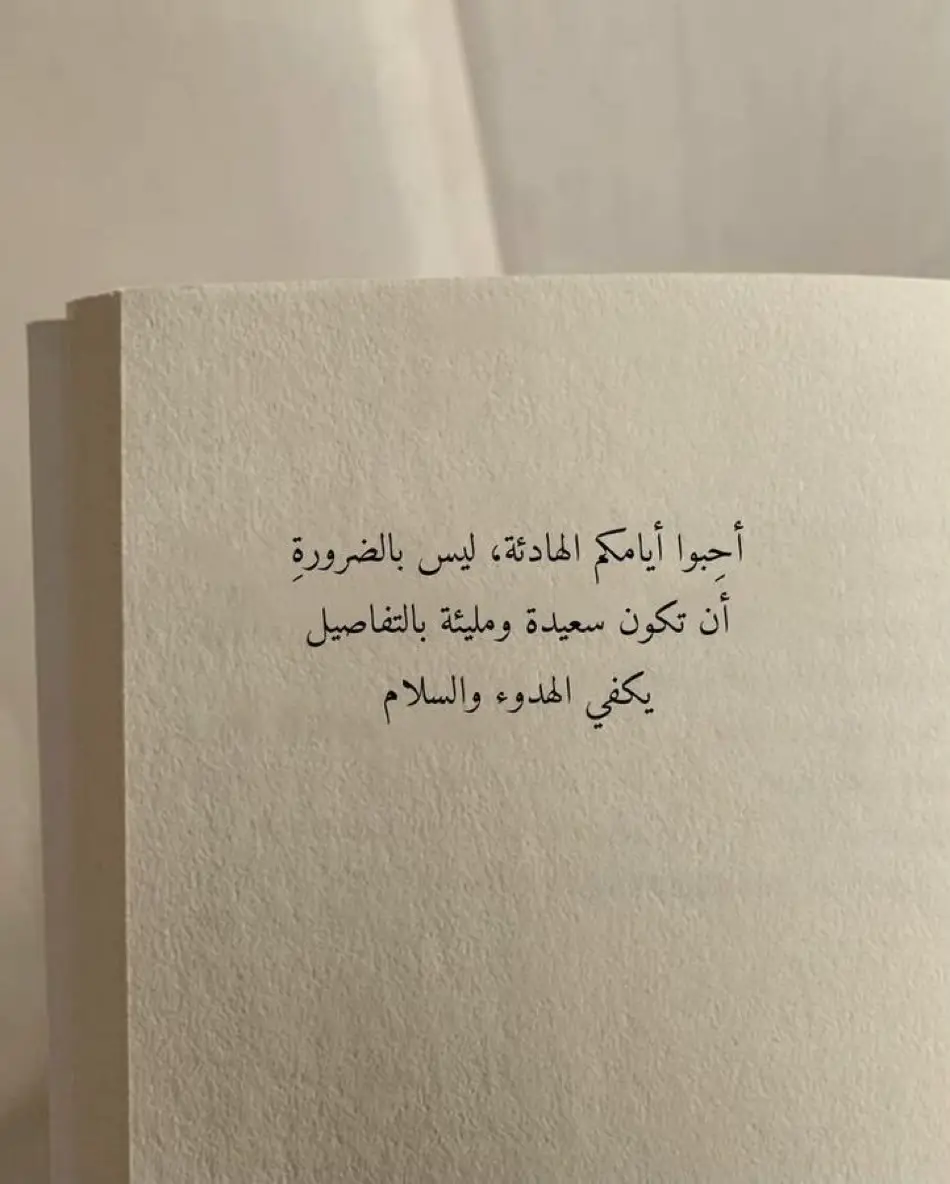 أحِبوا أيامكم الهادئة، ليس بالضرورةِ
أن تكون سعيدة ومليئة بالتفاصيل
يكفي الهدوء والسلام